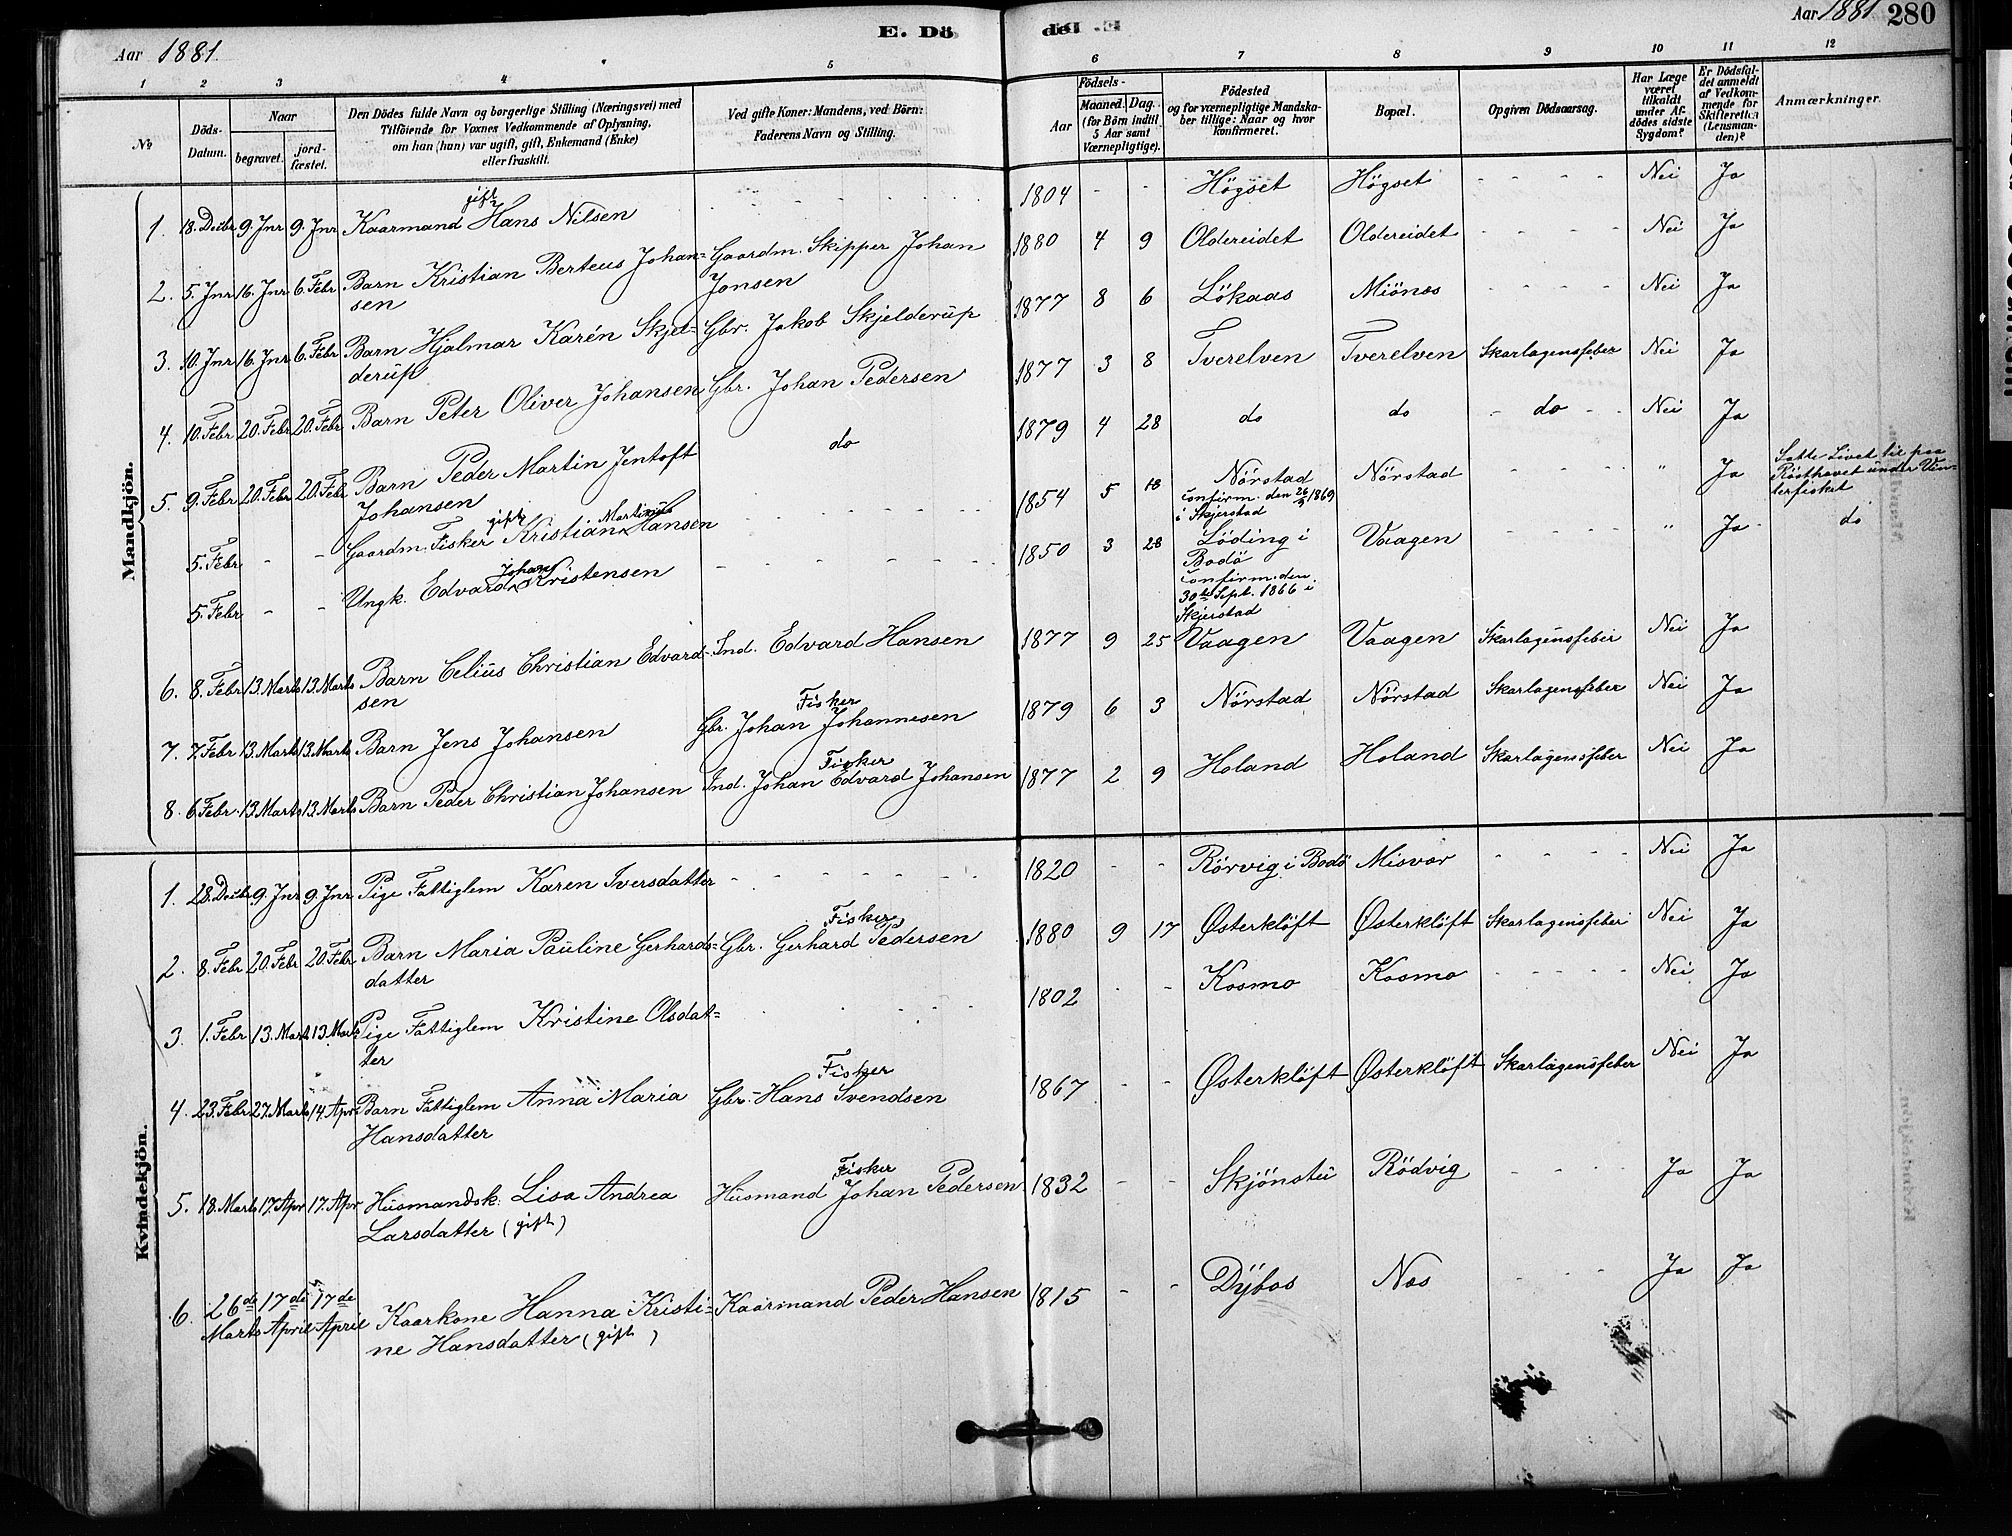 E. Döde. 280
Aar 1881. Aar 1881
1 2 3 4 5 6 7 8 9 10 11 12
No
Döds-Datum.
Naar
begravet.
jordfæstet.
Den Dödes fulde Navn og borgerlige Stilling (Næringsvei) med
Tilföiende for Voxnes Vedkommende af Oplysning,
om han (hun) var ugift, gift, Enkemand (Enke)
eller fraskilt.
Ved gifte Koner: Mandens, ved Börn:
Faderens Navn og Stilling.
Födsels-
Aar
Maaned. Dag.
(for Börn indtil
5 Aar samt
Værnepligtige).
Födested
og for værnepligtige Mandska-
ber tillige: Naar og hvor
konfirmeret.
Bopæl.
Opgiven Dödsaarsag.
Har Læge
været
tilkaldt
under Af-
dödes sidste
Sygdom?
Er Dödsfal-
det anmeldt
af Vedkom-
mende for
Skifteretten
(Lensman-
den)?
Anmærkninger.
Mandkjön.
1. 18. Decbr 9. Jnr 9. Jnr Kaarmand gift Hans Nilsen - - - - 1804 - - Högset Högset - - - - Nei Ja
2. 5. Jnr 16. Jnr 6. Febr Barn Kristian Berteus Johan= Gaardm. Skipper Johan 1880 4 9 Oldereidet Oldereidet - - - - Nei Ja
sen Jonsen
3. 10. Jnr 16. Jnr 6. Febr Barn Hjalmar Karén Skjel= Gbr. Jakob Skjelderup 1877 8 6 Lökaas Miönes - - - - Nei Ja
derup
4. 10. Febr 20. Febr 20. Febr Barn Peter Oliver Johansen Gbr. Johan Pedersen 1877 3 8 Tverelven Tverelven Skarlagensfeber Nei Ja
5. 9. Febr 20. Febr 20. Febr Barn Peder Martin Jentoft do 1879 4 28 do do - do - Nei Ja
Johansen
5. Febr - - Gaardm. Fisker gift Kristian Martinus Hansen - - - - 1854 5 18 Nörstad Nörstad - - - - " Ja Satte Livet til paa
confirm. den 26/9 1869 Rösthavet under Vin-
i Skjerstad terfisket
5. Febr - - Ungk. Edvard Johan Kristensen - - - - 1850 3 28 Löding i Vaagen - - - - " Ja do
Bodö
confirm. den
30te Sept. 1866 i
Skjerstad
6. 8. Febr 13. Marts 13. Marts Barn Celius Christian Edvard- Ind. Edvard Hansen 1877 9 25 Vaagen Vaagen Skarlagensfeber Nei Ja
sen
7. 7. Febr 13. Marts 13. Marts Barn Jens Johansen Gbr. Fisker Johan Johannesen 1879 6 3 Nörstad Nörstad Skarlagensfeber Nei Ja
8. 6. Febr. 13. Marts 13. Marts Barn Peder Christian Johansen Ind. Fisker Johan Edvard Johansen 1877 2 9 Holand Holand Skarlagensfeber Nei Ja
Kvindekjön.
1. 28. Decbr 9. Jnr 9. Jnr Pige Fattiglem Karen Iversdatter - - - - 1820 - - Rörvig i Bodö Misvær - - - - Nei Ja
2. 8. Febr 20. Febr 20. Febr Barn Maria Pauline Gerhards= Gbr. Fisker Gerhard Pedersen 1880 9 17 Østerklöft Østerklöft Skarlagensfeber Nei Ja
datter
3. 1. Febr 13. Marts 13. Marts Pige Fattiglem Kristine Olsdat= - - - - 1802 - - Kosmo Kosmo - - - - Nei Ja
ter
4. 23. Febr 27. Marts 14. Apr Barn Fattiglem Anna Maria Gbr. Fisker Hans Svendsen 1867 - - Østerklöft Østerklöft Skarlagensfeber Nei Ja
Hansdatter
5. 18. Marts 17. Apr 17. Apr Husmandsk. Lisa Andrea Husmand Fisker Johan Pedersen 1832 - - Skjönstu Rödvig - - - Ja Ja
Larsdatter (gift)
6. 26de 17de 17de Kaarkone Hanna Kristi= Kaarmand Peder Hansen 1815 - - Dybos Næs - - - Ja Ja
Marts April April ne Hansdatter (gift)